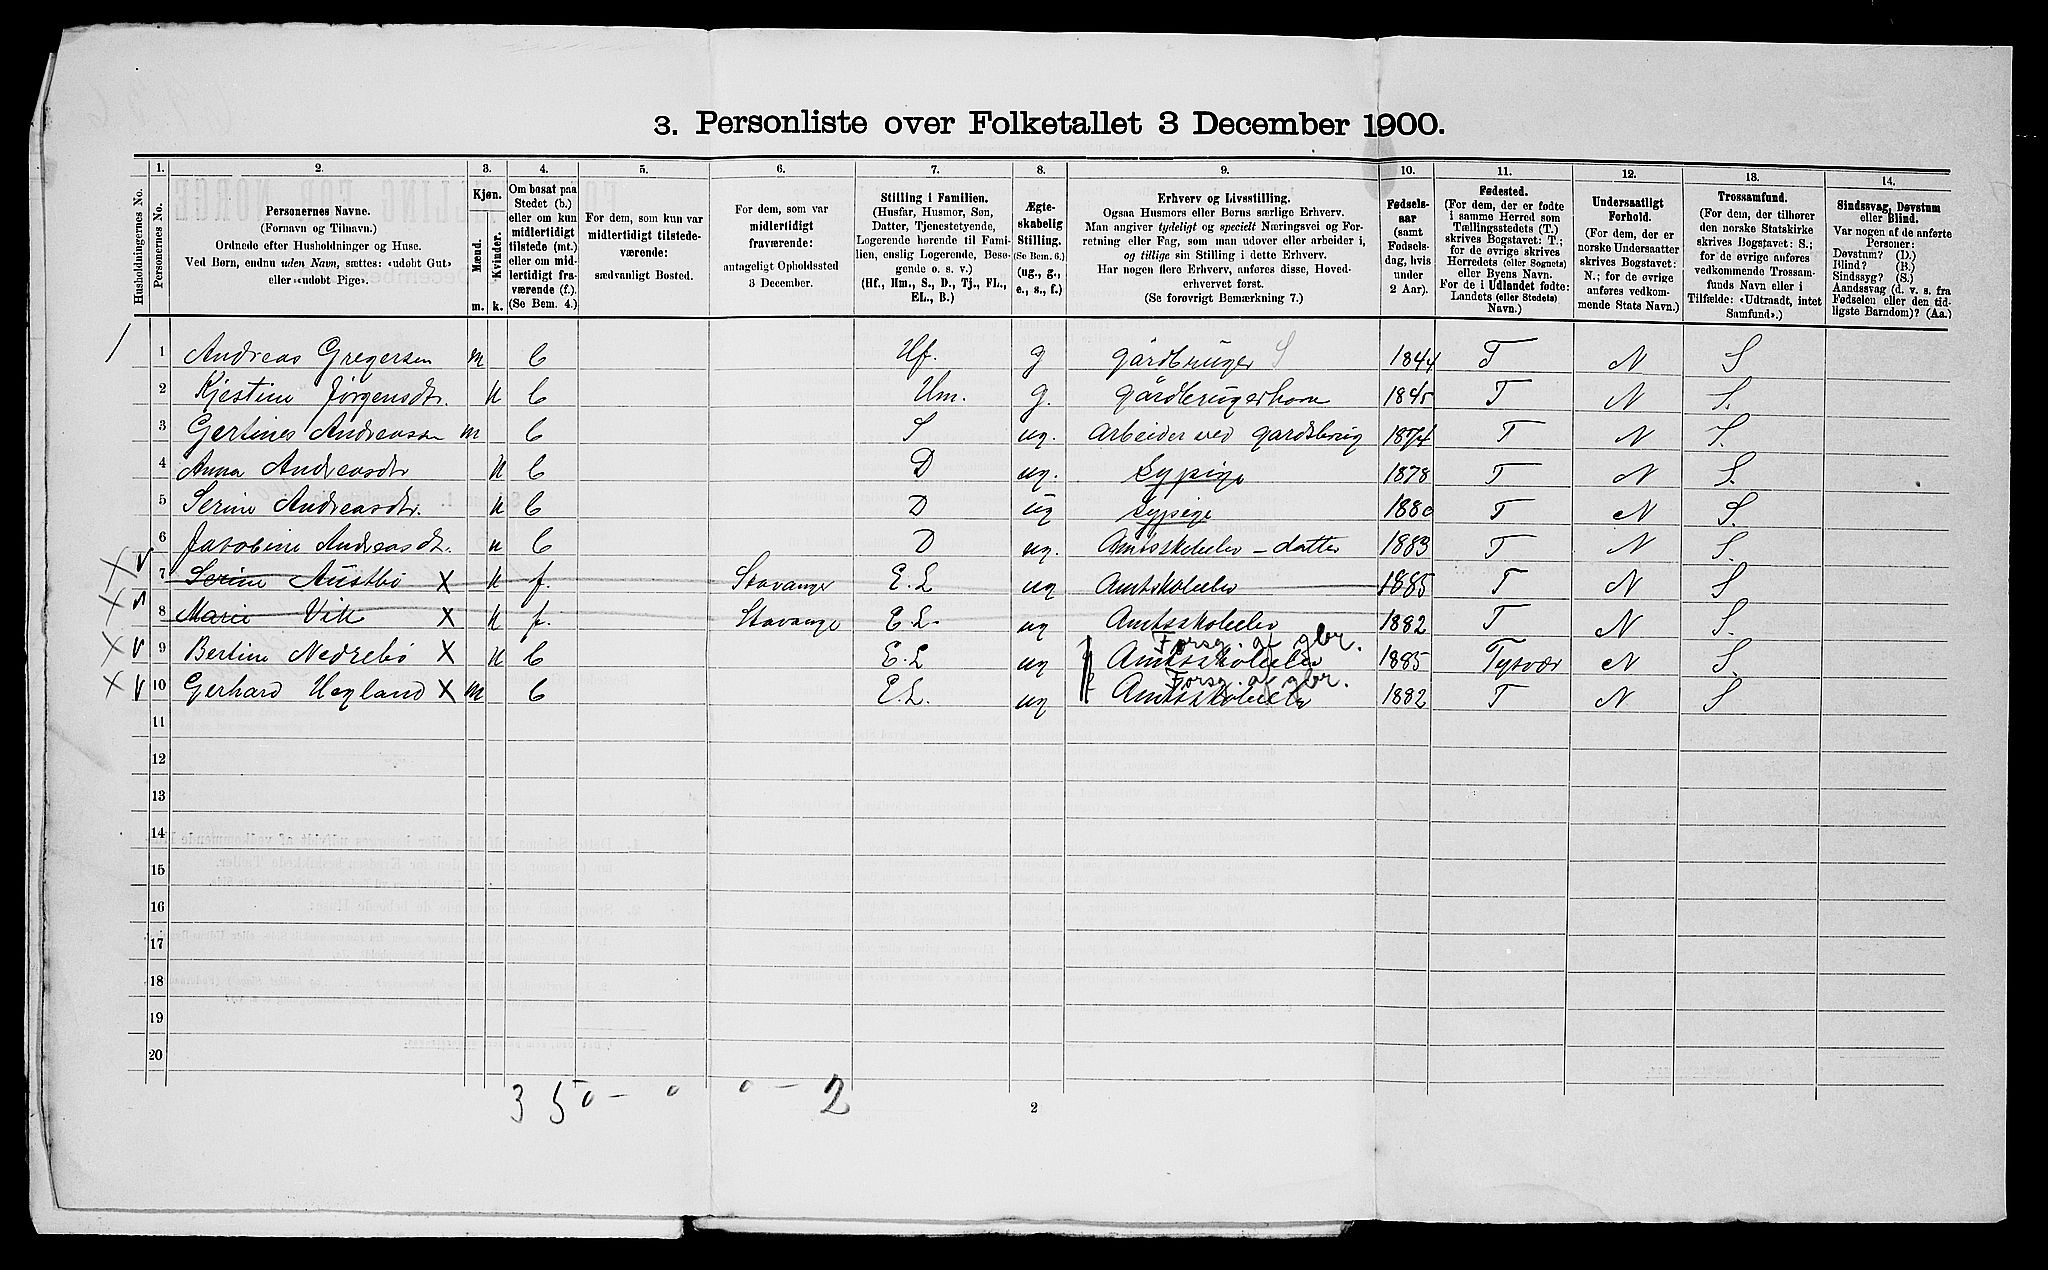 3. Personliste over Folketallet 3 December 1900.
1. 2. 3. 4. 5. 6. 7. 8. 9. 10. 11. 12. 13. 14.
Husholdningernes No.
Personernes No.
Personernes Navne.
(Fornavn og Tilnavn.)
Ordnede efter Husholdninger og Huse.
Ved Børn, endnu uden Navn, sættes: «udøbt Gut»
eller «udøbt Pige».
Kjøn.
Mænd.
Kvinder.
m. k.
Om bosat paa
Stedet (b.)
eller om kun
midlertidigt
tilstede (mt.)
eller om mid-
lertidigt fra-
værende (f.).
(Se Bem. 4.)
For dem, som kun var
midlertidigt tilstede-
værende:
sædvanligt Bosted.
For dem, som var
midlertidigt
fraværende:
antageligt Opholdssted
3 December.
Stilling i Familien.
(Husfar, Husmor, Søn,
Datter, Tjenestetyende,
Logerende hørende til Fami-
lien, enslig Logerende, Besø-
gende o. s. v.)
(Hf., Hm., S., D., Tj., FL.,
EL., B.)
Ægte-
skabelig
Stilling.
(Se Bem. 6.)
(ug., g.,
e., s., f.)
Erhverv og Livsstilling.
Ogsaa Husmors eller Børns særlige Erhverv.
Man angiver tydeligt og specielt Næringsvei og For-
retning eller Fag, som man udøver eller arbeider i,
og tillige sin Stilling i dette Erhverv.
Har nogen flere Erhverv, anføres disse, Hoved-
erhvervet først.
(Se forøvrigt Bemærkning 7.)
Fødsels-
aar
(samt
Fødsels-
dag, hvis
under
2 Aar).
Fødested.
(For dem, der er fødte
i samme Herred som
Tællingsstedets (T.)
skrives Bogstavet: T.;
for de øvrige skrives
Herredets (eller Sognets)
eller Byens Navn.
For de i Udlandet fødte:
Landets (eller Stedets)
Navn.)
Undersaatligt
Forhold.
(For dem, der er
norske Undersaatter
skrives Bogstavet:
N.; for de øvrige
anføres vedkom-
mende Stats Navn.)
Trossamfund.
(For dem, der tilhører
den norske Statskirke
skrives Bogstavet: S.;
for de øvrige anføres
vedkommende Trossam-
funds Navn eller i
Tilfælde: «Udtraadt, intet
Samfund».)
Sindssvag, Døvstum
eller Blind.
Var nogen af de anførte
Personer:
Døvstum? (D.)
Blind? (B.)
Sindssyg? (S.)
Aandssvag (d. v. s. fra
Fødselen eller den tid-
ligste Barndom)? (Aa.)
1 1 Andreas Gregersen m b Hf. g gårdbruger S 1844 T N S
2 Kjestine Jørgensdtr. k b Hm. g. gårdbrugerkone 1845 T N S.
3 Gertines Andreassen m b S ug. Arbeider ved gårdsbrug 1874 T N S.
4 Anna Andreasdtr k b D ug. Sypige 1878 T N S.
5 Serine Andreasdtr. k b D ug Sypige 1880 T N S.
6 Javobine Andreasdt. k b D ug. Amtsskoleelev - datter 1883 T N S.
X v 7 Serine Austbø X k f. Stavanger E. L ug Amtskoleelev 1885 T N S
X v 8 Marie Vik X k f. Stavanger E L. ug Amtsskoleelev 1882 T N S.
Forsg. af gbr.
X v 9 Bertine Nedrebø X k b E. L ug Amtsskoleelev 1885 Tysvær N S.
Forsg. af gbr.
X v 10 Gerhard Hegland X m b E. L. ug Amtsskoleelev 1882 T N S
11
12
13
14
15
16
17
18
19
20
3 5 0 - 0 0 - 2
2